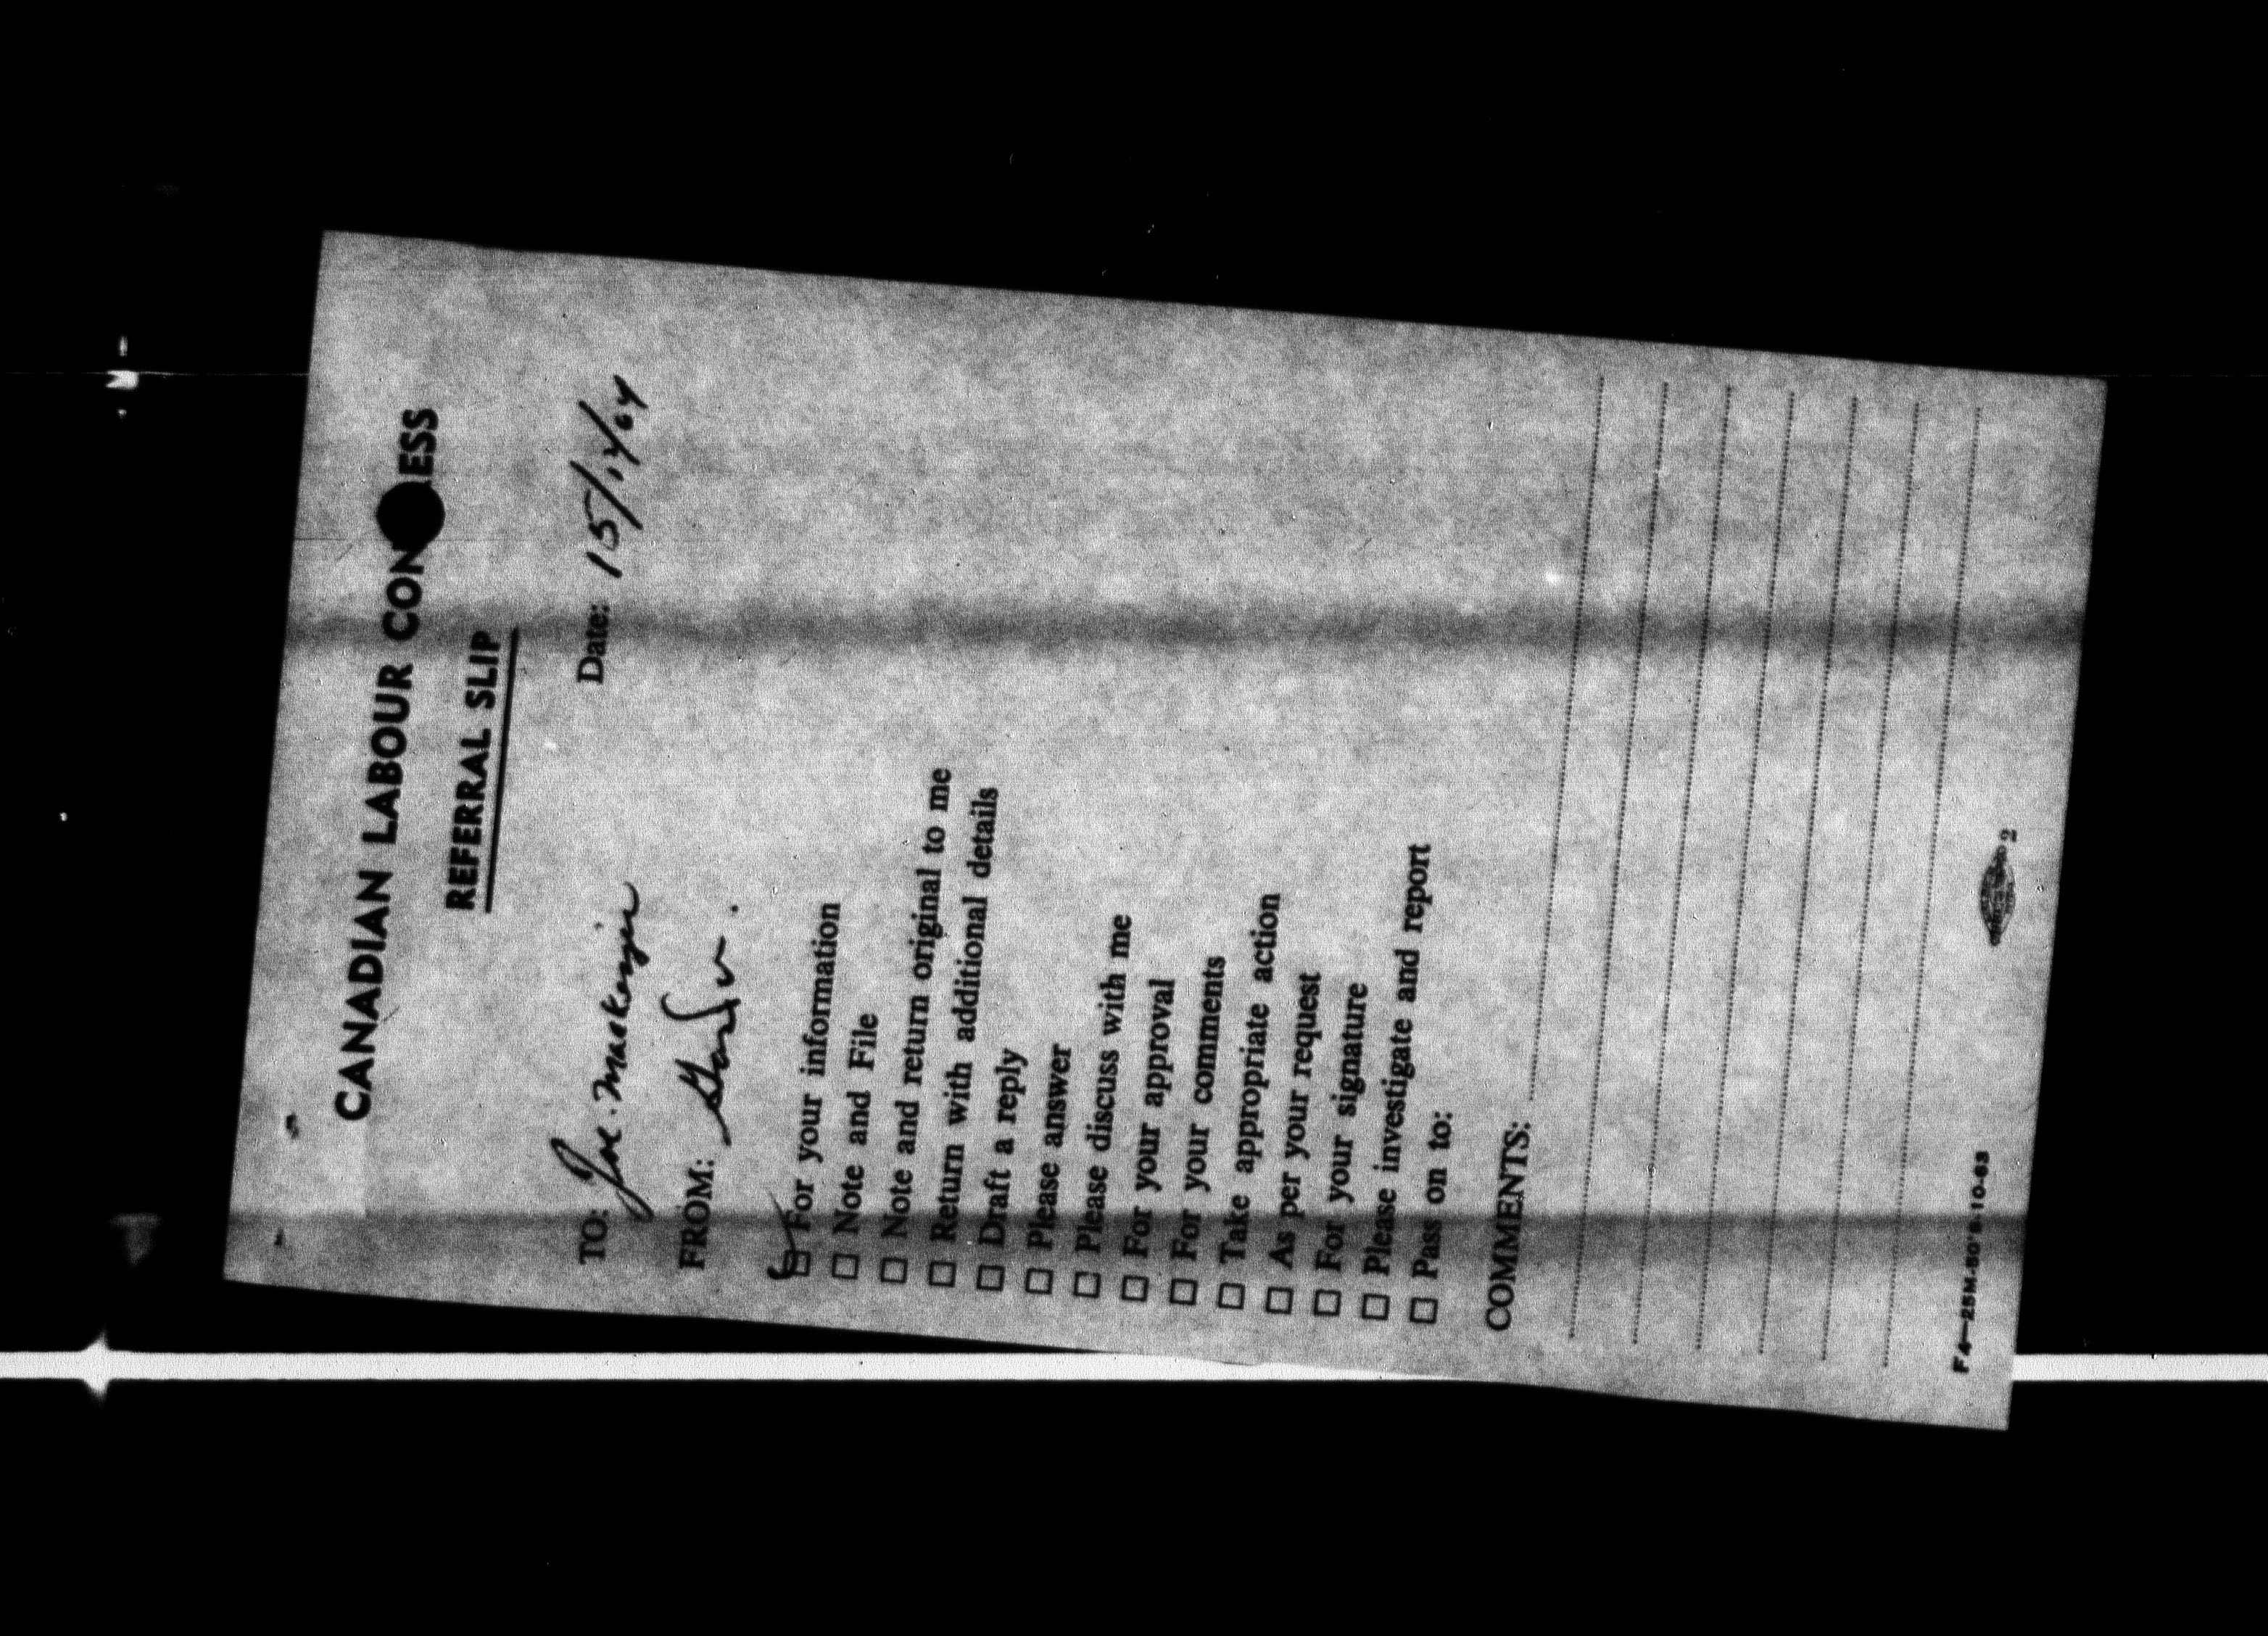 CANADIAN LABOUR CON ESS
REFERRAL SLIP
Date: 15/14/64
TO: Joe MacKenzie
FROM: Gordon.
For your information
Note and File
Note and return original to me
Return with additional details
Draft a reply
Please answer
Please discuss with me
For your approval
For your comments
Take appropriate action
As per your request
For your signature
Please investigate and report
Pass on to:
COMMENTS:
F4—25M-50'S-10-63
2